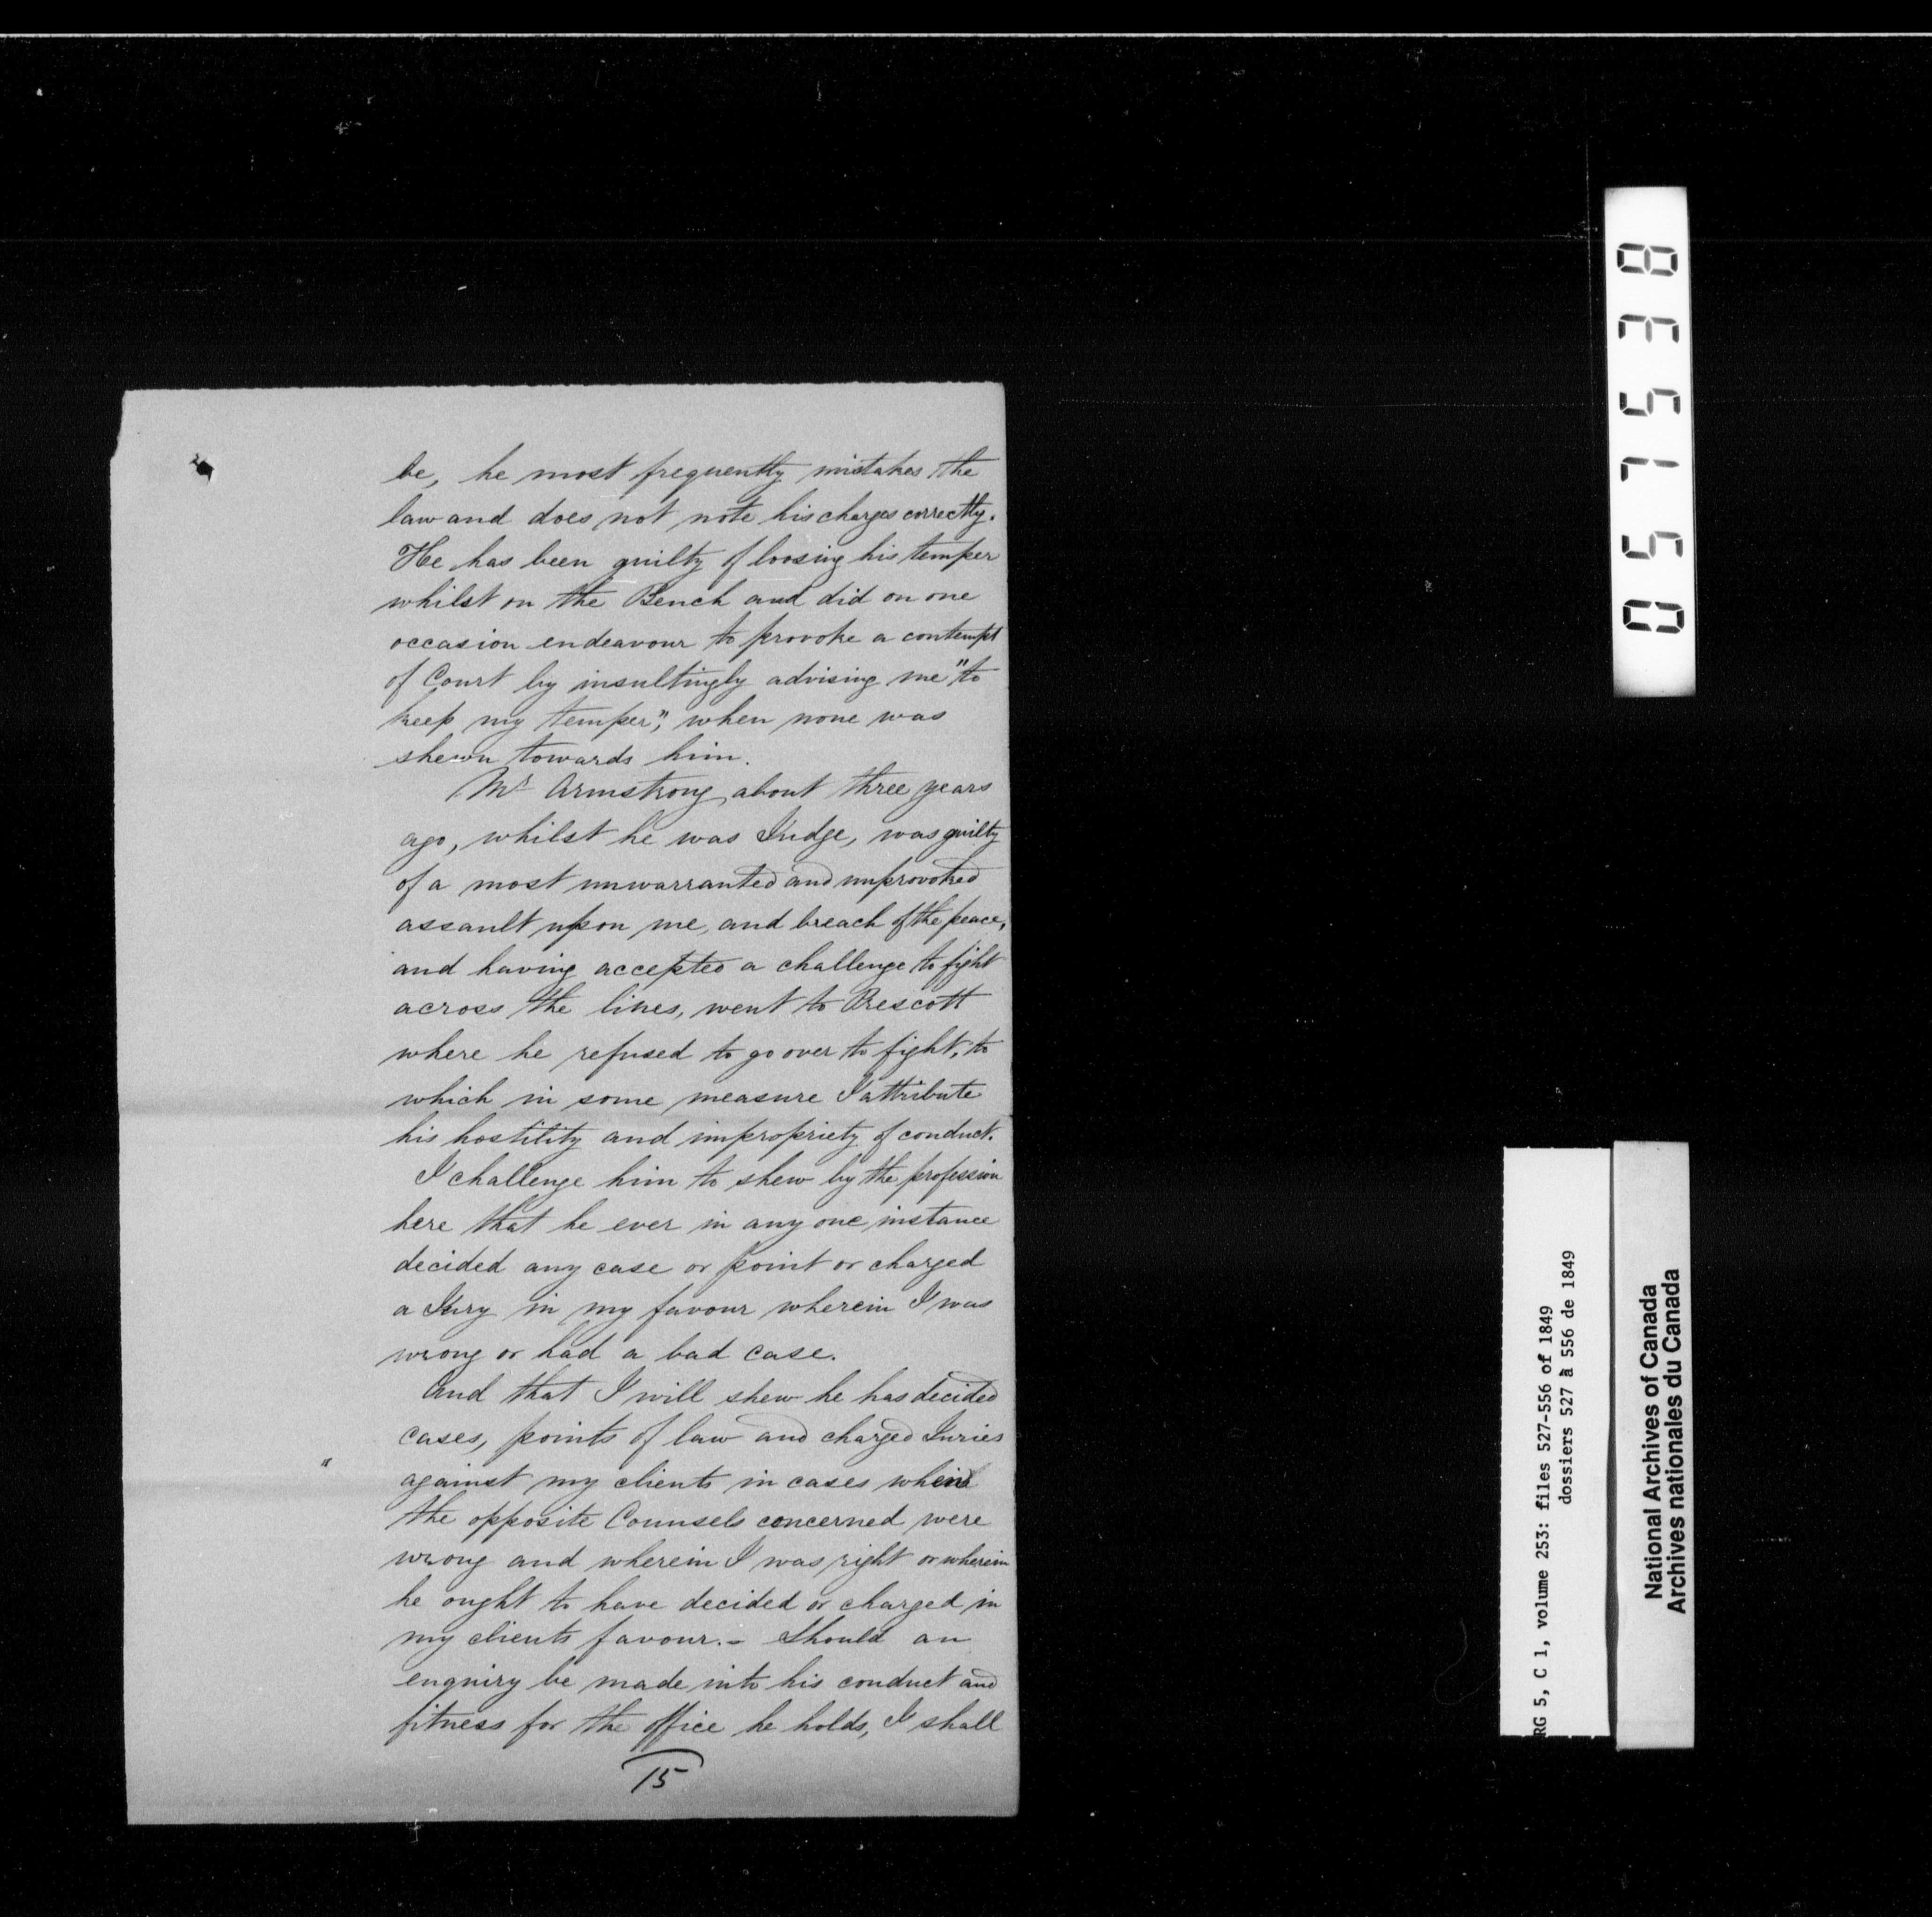 be, he most frequently mistakes the
law and does not note his charges correctly.
He has been guilty of loosing his temper
whilst on the Bench and did on one
occasion endeavour to provoke a contempt
of Court by insultingly advising me "to
keep my temper", when none was
shewn towards him.
Mr Armstrong about three years
ago, whilst he was Judge, was guilty
of a most unwarranted and unprovoked
assault upon me, and breach of the peace,
and having accepted a challenge to fight
across the lines, went to Prescott
where he refused to go over to fight, to
which in some measure I attribute
his hostility and impropriety of conduct.
I challenge him to shew by the profession
here that he ever in any one instance
decided any case or point or charged
a Jury in my favour wherein I was
wrong or had a bad case.
And that I will shew he has decided
cases, points of law and charged Juries
against my clients in cases where
the opposite Counsels concerned were
wrong and wherein I was right or wherein
he ought to have decided or charged in
my clients favour. - Should an
enquiry be made into his conduct and
fitness for the office he holds, I shall
15
057538
RG 5, C 1, volume 253: files 527-556 of 1849
dossiers 527 à 556 de 1849
National Archives of Canada
Archives nationales du Canada